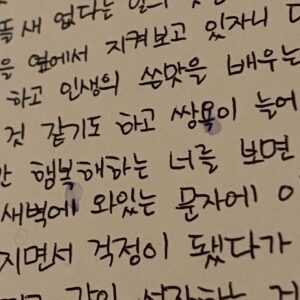 뜰 새 없다는 말의
을 옆에서 지켜보고 있자니
하고 인생의 쓴맛을 배우는
것 같기도 하고 쌍욕이 늘어
행복해하는 너를 보면
새벽에 와있는 문자에
지면서 걱정이 됐다가
같이 성장하는